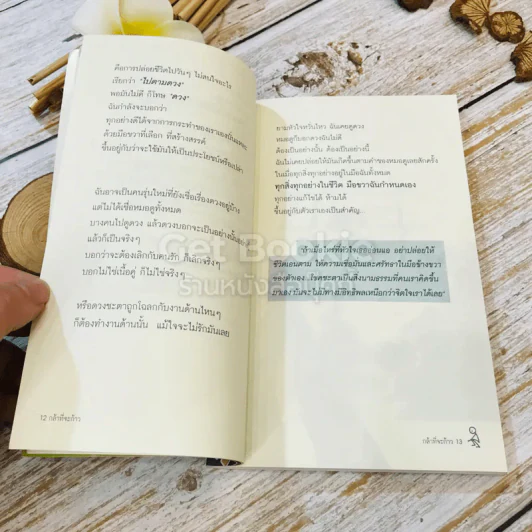 คือการปล่อยชีวิตไปวันๆ ไม่สนใจอะไร
เรียกว่า "ไปตามดวง"
พอมันไม่ดี ก็โทษ "ดวง"
ฉันกำลังจะบอกว่า
ทุกอย่างดีได้จากการกระทำของเราเอง
ด้วยมือขวาที่เลือก ที่สร้างสรรค์
ขึ้นอยู่กับว่าจะใช้มันให้เป็นประโยชน์หรือเปล่า
ฉันอาจเป็นคนรุ่นใหม่ที่ยังเชื่อเรื่องดวงอยู่บ้าง
แต่ไม่ได้เชื่อหมอดูทั้งหมด
บางคนไปดูดวง แล้วดวงบอกจะเป็นอย่างนั้น
แล้วก็เป็นจริงๆ
บอกว่าจะต้องเลิกกับคนรัก ก็เลิกจริงๆ
บอกไม่ใช่เนื้อคู่ ก็ไม่ใช่จริงๆ
หรือดวงชะตาถูกโฉลกกับงานด้านไหนๆ
ก็ต้องทำงานด้านนั้น แม้ใจจะไม่รักมันเลย
12 กล้าที่จะก้าว
ถามหัวใจหวั่นไหว ฉันเคยดูดวง
หมอดูก็บอกดวงฉันไม่ดี
ต้องเป็นอย่างนั้น ต้องเป็นอย่างนี้
ฉันไม่เคยปล่อยให้มันเกิดขึ้นตามคำของหมอดูเลยสักครั้ง
ในเมื่อทุกสิ่งทุกอย่างอยู่ในมือฉันทั้งหมด
ทุกสิ่งทุกอย่างในชีวิต มือขวาฉันกำหนดเอง
ทุกอย่างแก้ไขได้ ห้ามได้
ขึ้นอยู่กับตัวเราเองเป็นสำคัญ...
"ถ้าเมื่อใดที่หัวใจเธออ่อนแอ อย่าปล่อยให้
ชีวิตเอนตาม ให้ความเชื่อมั่นและศรัทธาในมือข้างขวา
ของตัวเอง โชคชะตาเป็นสิ่งนามธรรมที่คนเราคิดขึ้น
มาเอง มันจะไม่มีทางมีอิทธิพลเหนือกว่าจิตใจเราได้เลย"
กล้าที่จะก้าว 13
Get Bookie
ร้านหนังสือ